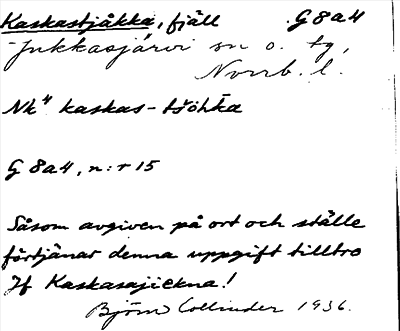 Kaskastjåkka, fjäll G8a4
Jukkasjärvi sn o. tg,
Norrb. l.
Nk⁴ kaskas-tšohka
G 8a4, n:r 15
Såsom avgiven på ort och ställe
förtjänar denna uppgift tilltro
Jf Kaskasajiekna!
Björn Collinder 1936.